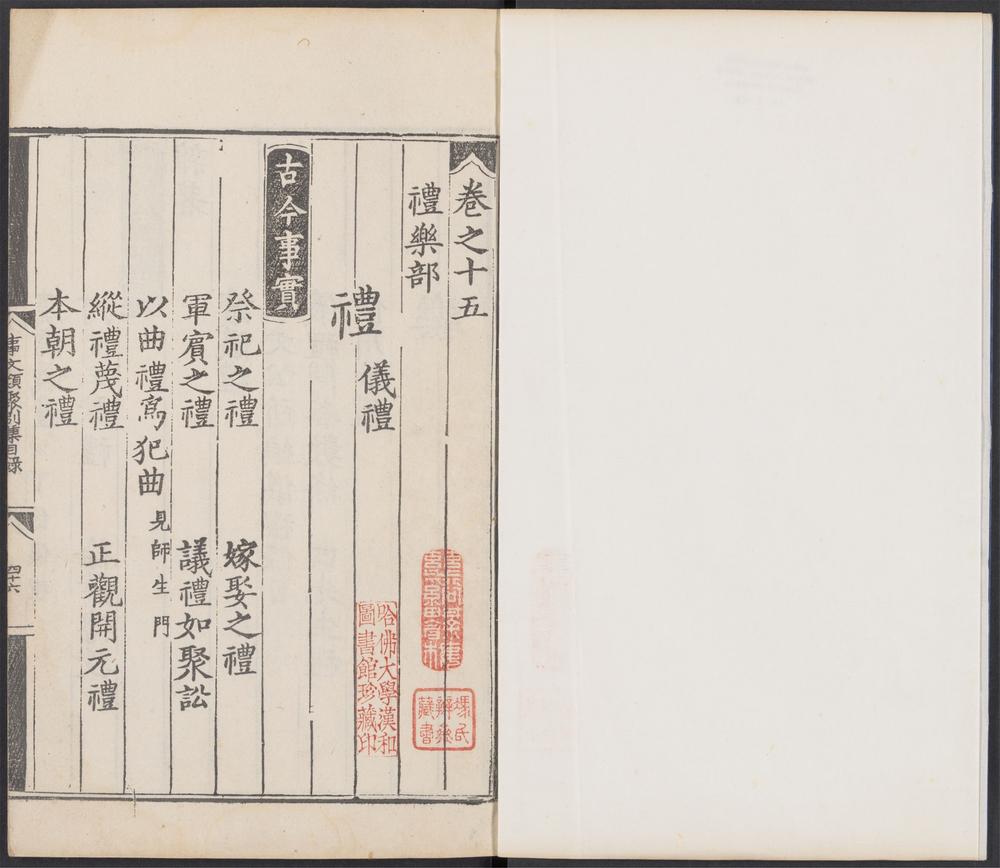 卷之十五
禮樂部
禮 儀禮
古今事實
祭祀之禮 嫁娶之禮
軍賓之禮 議禮如聚訟
以曲禮為犯曲 見師生門
縱禮蔑禮 正觀開元禮
本朝之禮
事文類聚別集目录
四十六
哈佛大學漢和
圖書館珍藏印
馮氏
辨齋
藏書